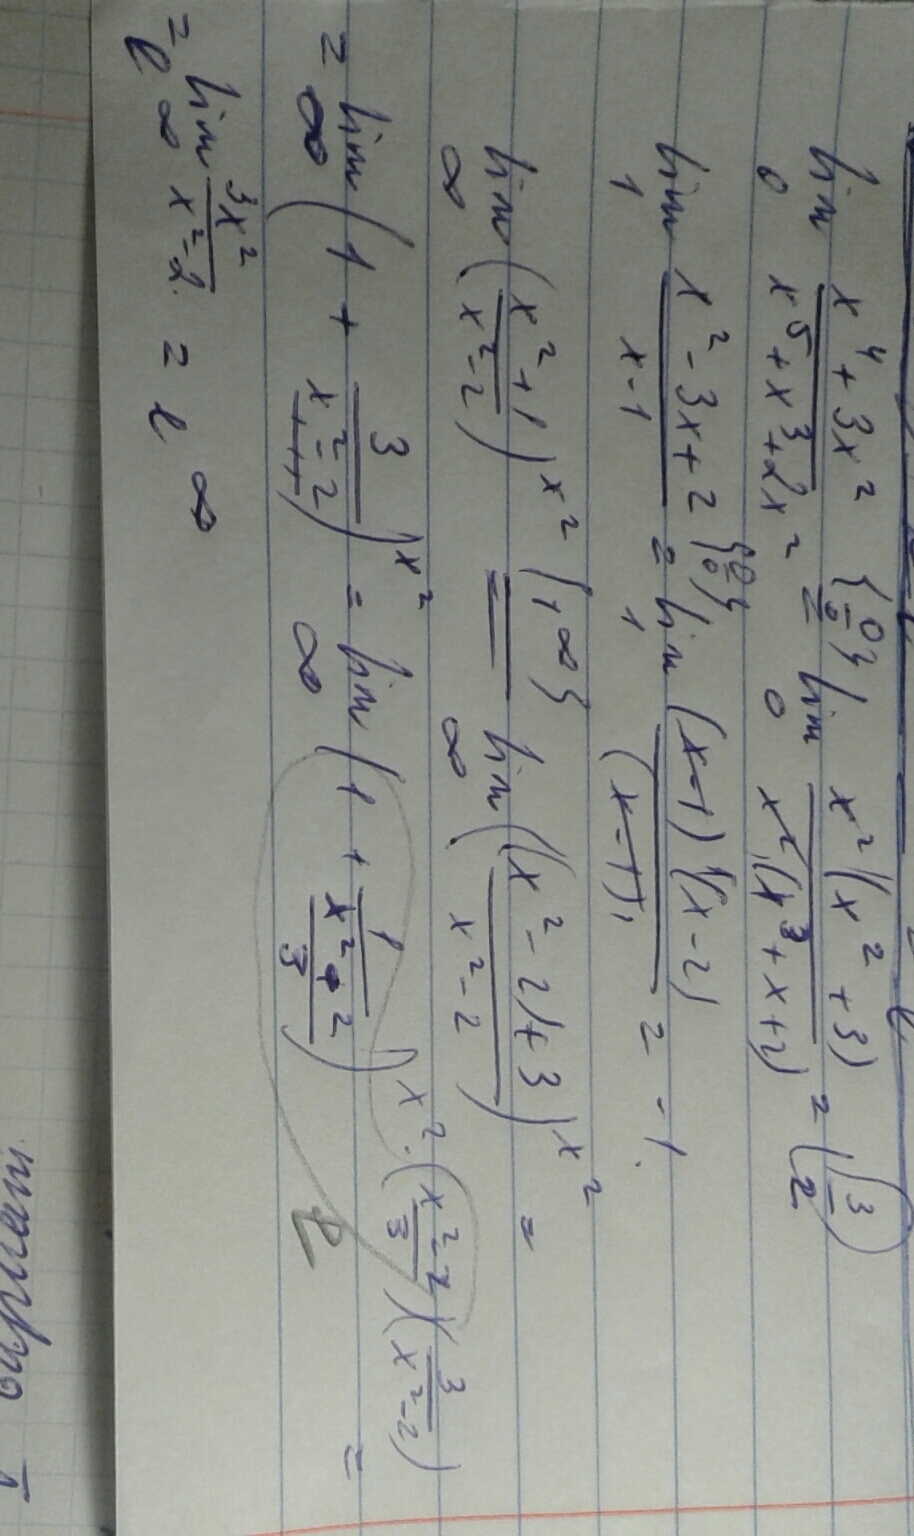 lim x⁴ + 3x² / x⁵ + x³ + 2x² {0/0} = lim x²(x² + 3) / x²(x³ + x + 2) = (3/2)
0 0
lim x² - 3x + 2 / x - 1 {0/0} = lim (x-1)(x-2) / (x-1) = -1.
1 1
lim (x² + 1 / x² - 2)^x² {1^∞} = lim ((x² - 2) + 3 / x² - 2)^x² =
∞ ∞
= lim (1 + 3 / x² - 2)^x² = lim (1 + 1 / x² - 2 / 3)^x² · (x² - 2 / 3)(3 / x² - 2) =
∞ ∞ e
= e^lim 3x² / x² - 2 = e^∞
∞
I вариант.